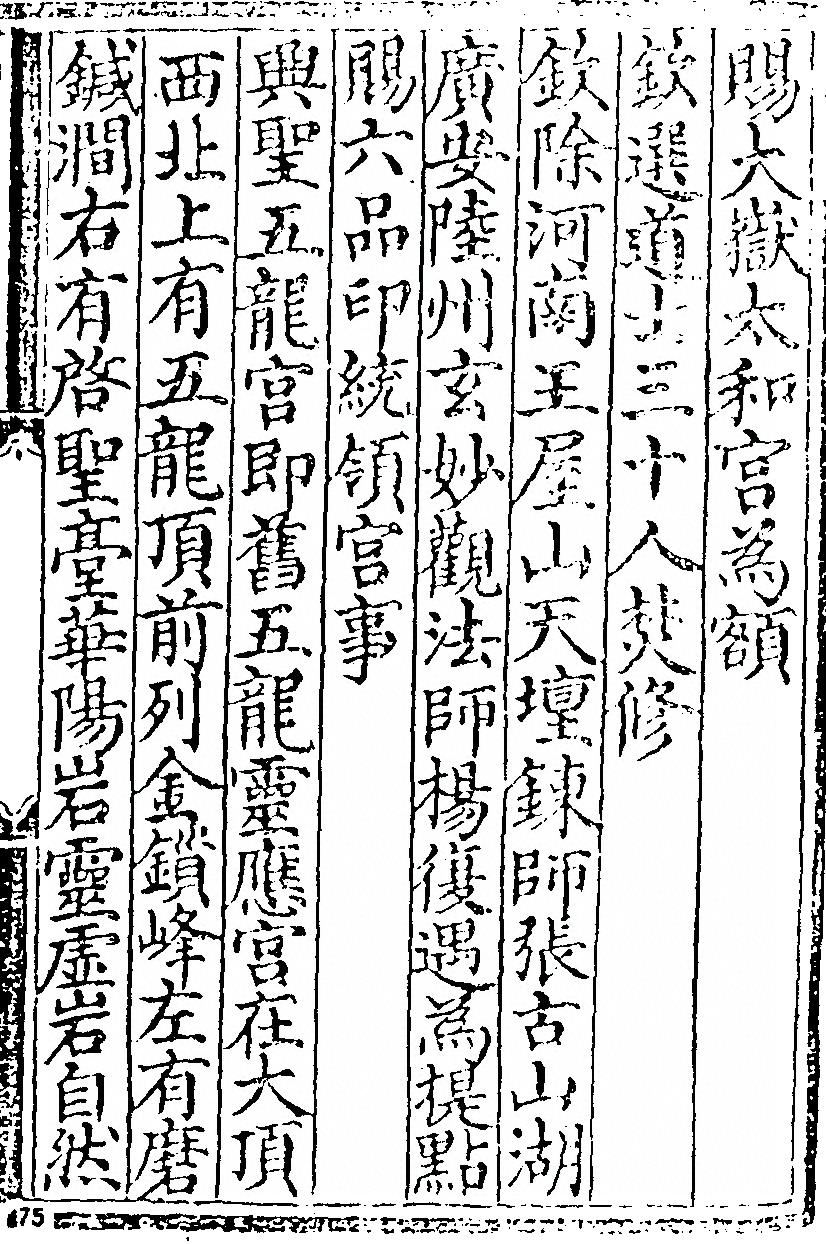 賜大嶽太和宮為額
欽選道士三十人焚修
欽除河南王屋山天壇鍊師張古山湖
廣安陸州玄妙觀法師楊復遇為提點
賜六品印統領宮事
興聖五龍宮即舊五龍靈應宮在大頂
西北上有五龍頂前列金鎖峰左有磨
鍼澗右有啓聖臺華陽岩靈虛岩自然
175